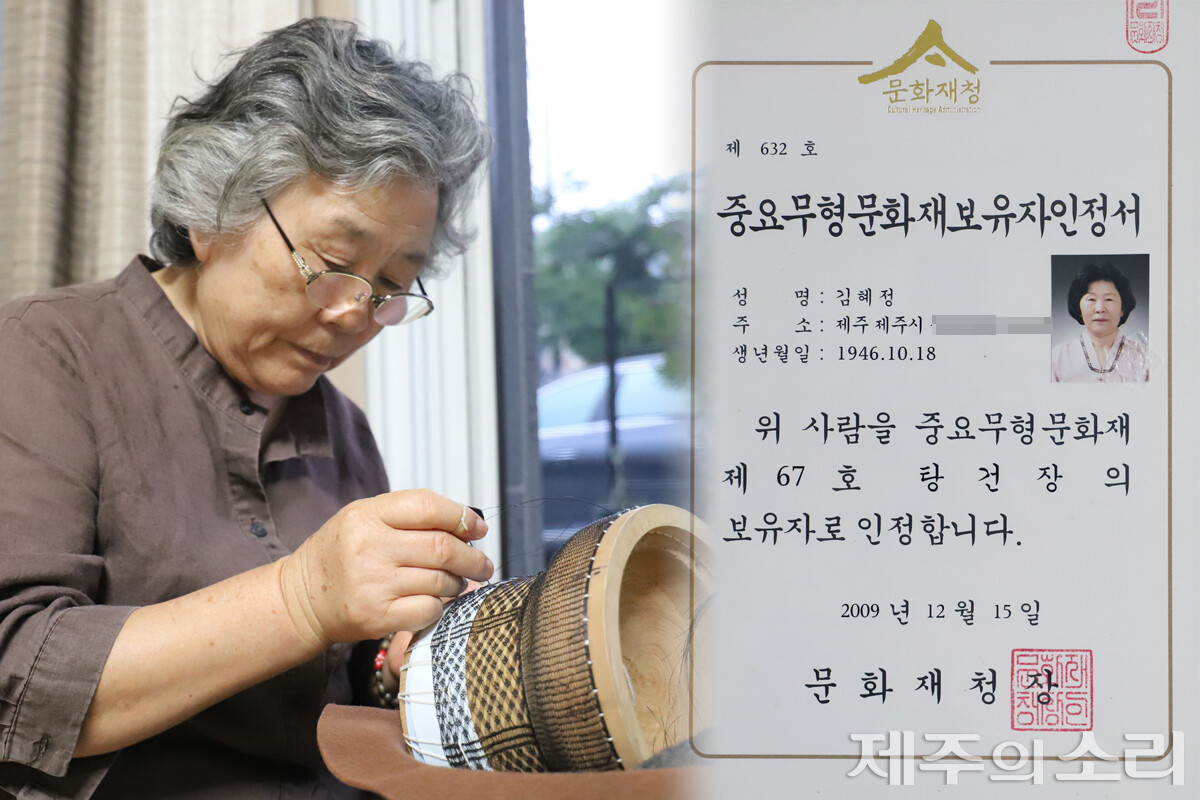 문화재청
Cultural Heritage Administration
제 632 호
중요무형문화재보유자인정서
성 명 : 김혜정
주 소 : 제주 제주시
생년월일 : 1946.10.18
위 사람을 중요무형문화재
제 67 호 탕건장의
보유자로 인정합니다.
2009 년 12 월 15 일
문화재청장
제주의소리